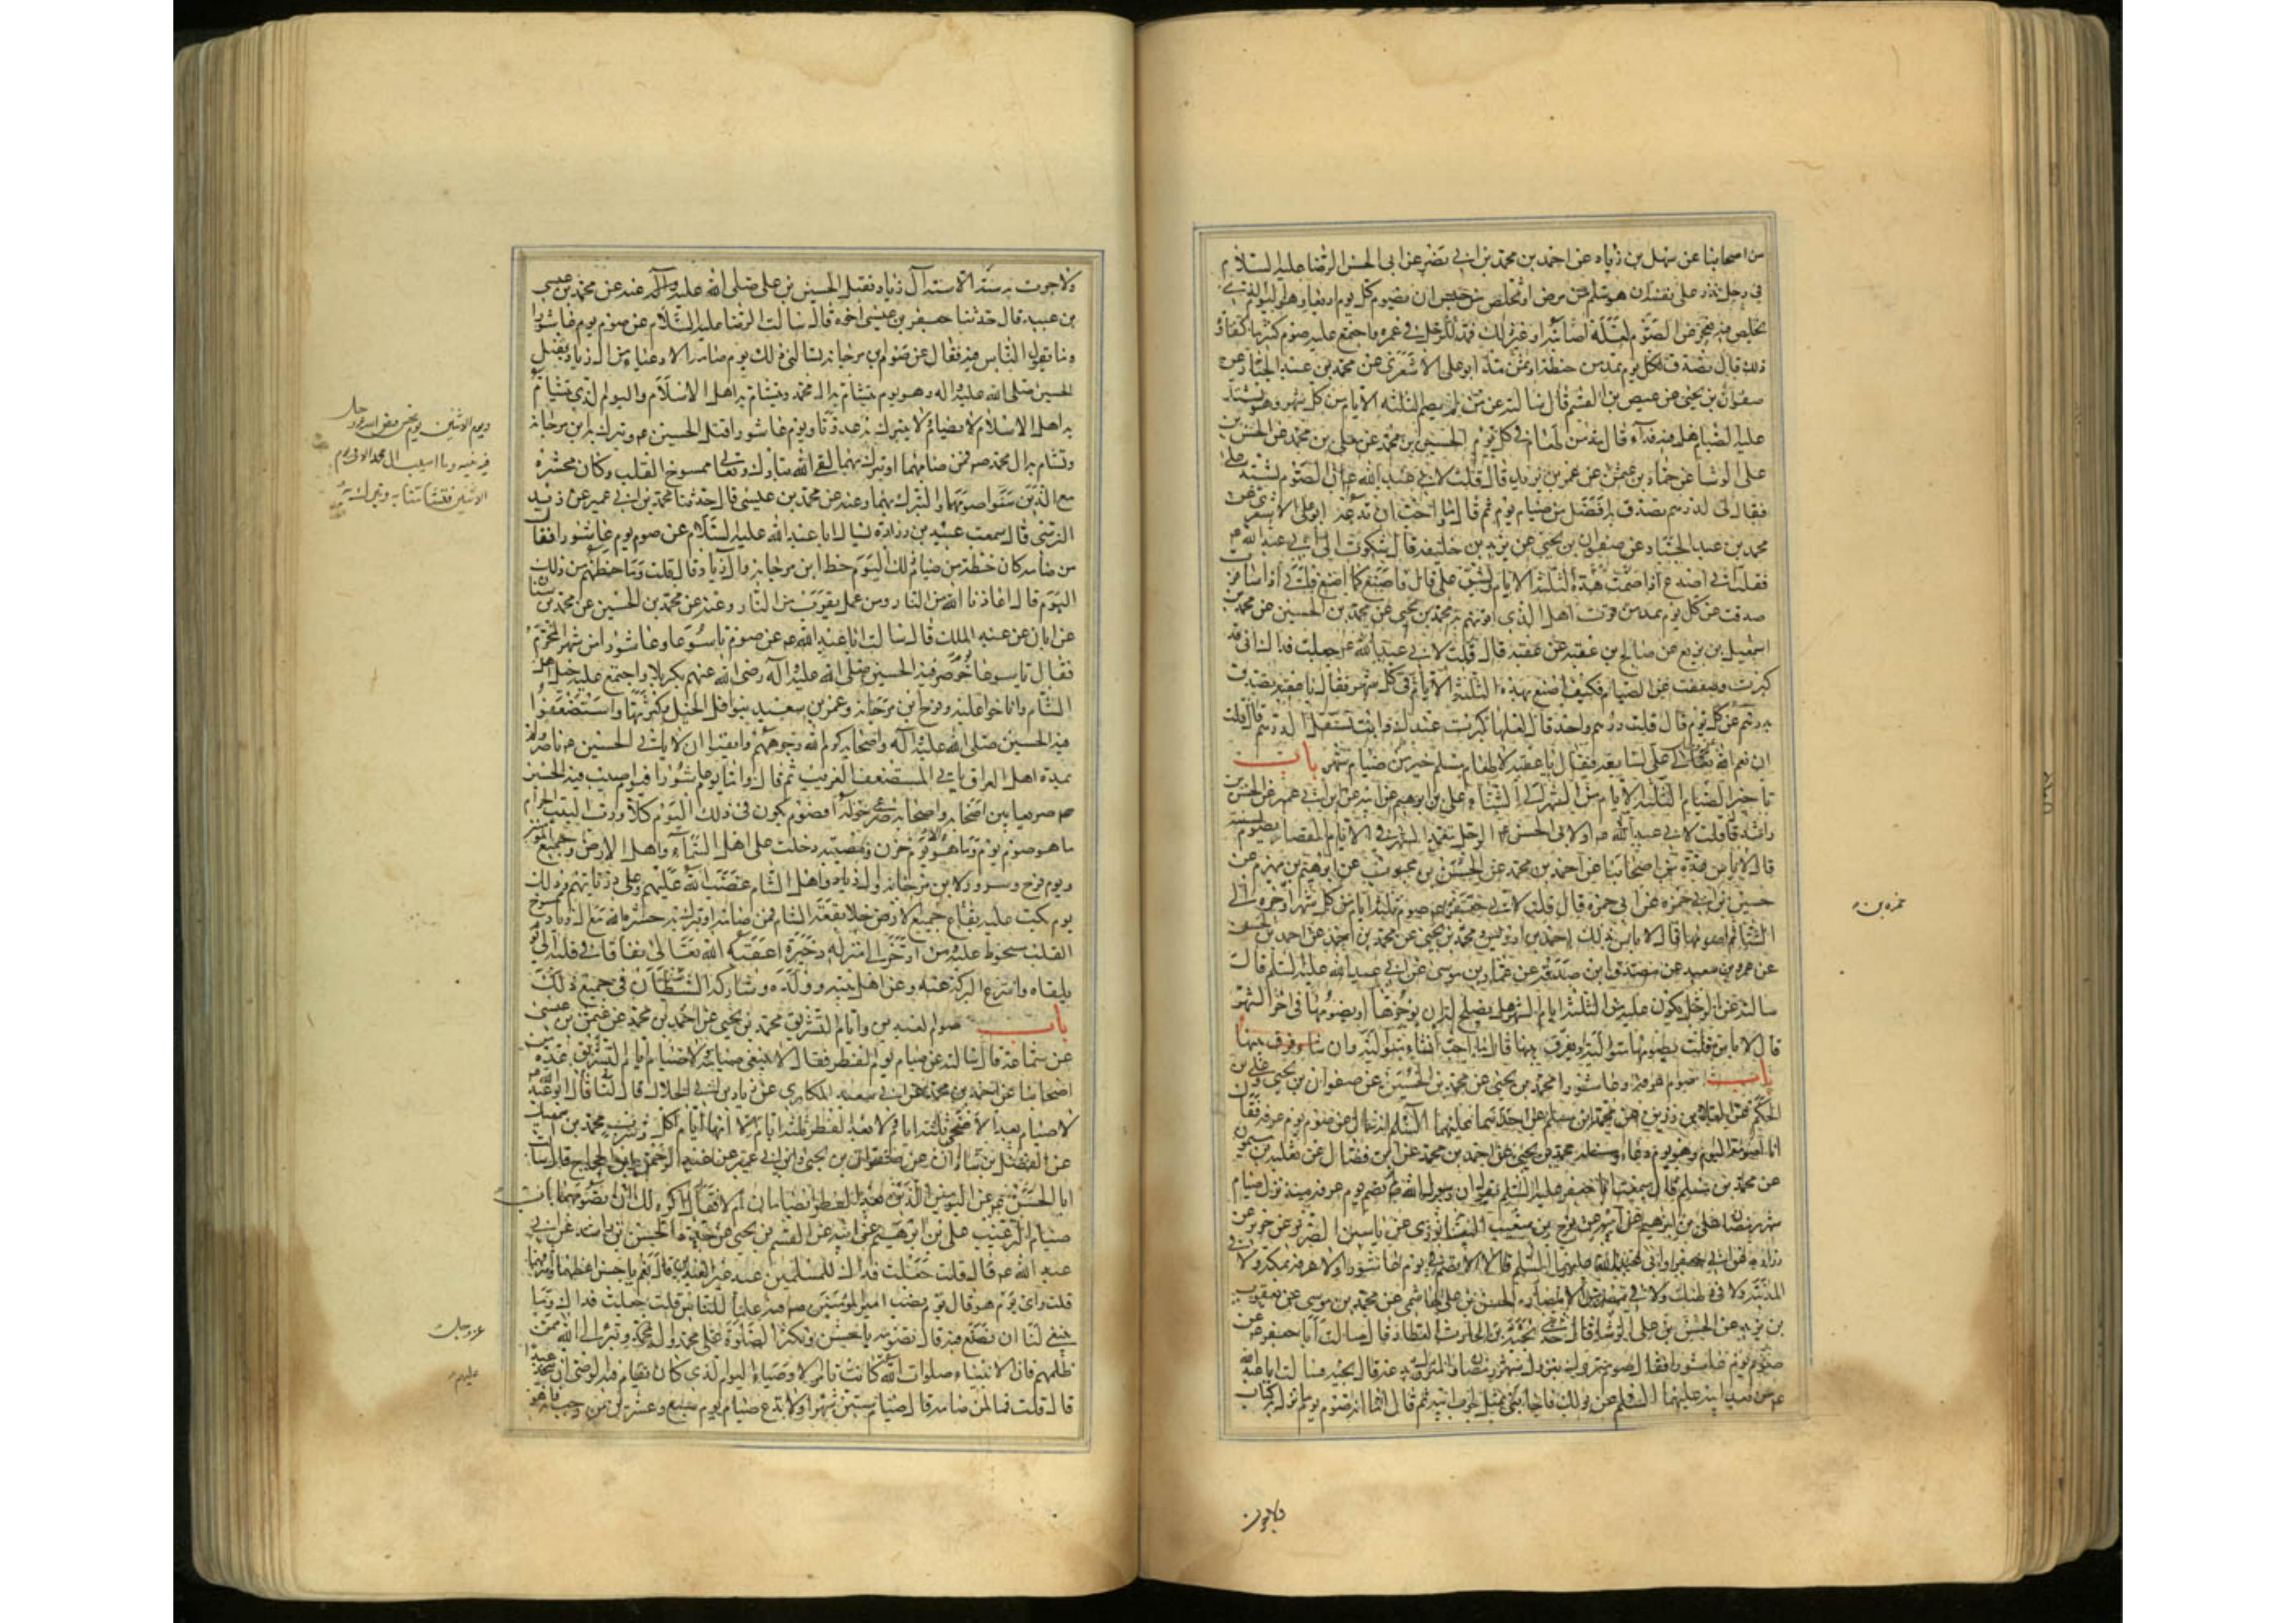 من اصحابنا عن سهل بن زياد عن احمد بن محمد بن ابي نصر عن ابى الحسن الرضا عليه السلام
في رجل نذر على نفسه ان هو سلم من مرض او تخلص من حبس ان يصوم كل يوم اربعا وهو اليوم الذي
تخلص فيه فعجز عن الصوم لعلة اصابته او غير ذلك فمد للرجل في عمره واجتمع عليه صوم كثير ما كفارة
ذلك قال تصدق لكل يوم بمد من حنطة او بمد ابو على الاشعرى عن محمد بن عبد الجبار عن
صفوان بن يحيى عن عيص بن القسم قال سالته عن من لم يصم الثلثة الايام من كل شهر وهو يشتد
عليه الصيام هل فيه فداء قال مد من طعام في كل يوم الحسين بن محمد عن معلى بن محمد عن الحسن بن
على الوشا عن حماد بن عثمن عن عمر بن يزيد قال قلت لابي عبد الله ع ان الصوم يشتد على
فقال لى لدرهم تصدق به افضل من صيام يوم ثم قال وما احب ان تدعه ابو على الاشعرى عن
محمد بن عبد الجبار عن صفوان بن يحيى عن يزيد بن خليفه قال شكوت الى ابي عبد الله ع
فقلت انى اصدع اذا صمت هذه الثلثة الايام ويشق على قال فاصنع كما اصنع فانى اذا سافرت
صدقت عن كل يوم بمد من قوت اهلى الذى اقوتهم به محمد بن يحيى عن محمد بن الحسين عن محمد بن
اسمعيل بن بزيع عن صالح بن عقبه عن عقبه قال قلت لابي عبد الله ع جعلت فداك انى قد
كبرت وضعفت عن الصيام فكيف اصنع بهذه الثلثة الايام في كل شهر فقال يا عقبه تصدق
بدرهم عن كل يوم قال قلت درهم واحد قال لعلها كبرت عندك وانت تستقل الدرهم قال قلت
ان نعم الله تعالى على لسابغه فقال يا عقبه لاطعام مسلم خير من صيام شهر باب
تاخير الصيام الثلثة الايام من الشهر الى الشتاء على بن ابرهيم عن ابيه عن ابن ابي عمير عن الحسن بن
راشد قال قلت لابي عبد الله ع او لابى الحسن ع الرجل يتعمد الشهر في الايام القصار يصومه لسنة
قال لا باس عدة من اصحابنا عن احمد بن محمد عن الحسن بن محبوب عن ابرهيم بن مهزم عن
حسين بن ابي حمزه عن ابى حمزه قال قلت لابي جعفر ع صوم ثلثة ايام من كل شهر اؤخره الى
الشتاء ثم اصومها قال لا باس بذلك احمد بن ادريس و محمد بن يحيى عن محمد بن احمد عن احمد بن الحسن
عن عمرو بن سعيد عن مصدق بن صدقه عن عمار بن موسى عن ابي عبد الله عليه السلم قال
سالته عن الرجل يكون عليه من الثلثة ايام الشهر هل يصلح له ان يؤخرها او يصومها فى اخر الشهر
قال لا باس قلت يصومها متوالية او يفرق بينها قال ما احب ان شاء متوالية وان شا فرق بينها
باب صوم عرفه وعاشورا محمد بن يحيى عن محمد بن الحسين عن صفوان بن يحيى وعلى بن
الحكم عن العلا بن رزين عن محمد بن مسلم عن احدهما عليهما السلم انه سال عن صوم يوم عرفه فقال
انا اصومه اليوم وهو يوم دعاء ومسئلة محمد بن يحيى عن احمد بن محمد عن ابن فضال عن ثعلبه بن ميمون
عن محمد بن مسلم قال سمعت ابا جعفر عليه السلم يقول ان رسول الله لم يصم يوم عرفه منذ نزل صيام
شهر رمضان على بن ابرهيم عن ابيه عن نوح بن شعيب النيشابورى عن ياسين الضرير عن حريز عن
زراره عن ابي جعفر وابى عبد الله عليهما السلم قالا لا يصم في يوم عاشورا ولا عرفه بمكة ولا في
المدينة ولا في وطنك ولا في مصر من الامصار الحسن بن على الهاشمى عن محمد بن موسى عن يعقوب
بن يزيد عن الحسن بن على الوشا قال حدثني نجبة بن الحارث العطار قال سالت ابا جعفر ع عن
صوم يوم عاشورا فقال صوم متروك بنزول شهر رمضان والمتروك بدعة قال نجبه فسالت ابا عبد الله
ع من بعد ابيه عليهما السلم عن ذلك فاجابنى بمثل جواب ابيه ثم قال اما انه صوم يوم ما نزل به كتاب
حمزه بن
ولا جرت به سنة الا سنة آل زياد بقتل الحسين بن على صلى الله عليه وآله عنه عن محمد بن عيسى
بن عبيد قال حدثنا جعفر بن عيسى اخوه قال سالت الرضا عليه السلام عن صوم يوم عاشورا
وما يقول الناس فيه فقال عن صوم ابن مرجانة تسالنى ذلك يوم صامه الادعياء من آل زياد بقتل
الحسين صلى الله عليه واله وهو يوم يتشأم به ال محمد ويتشام به اهل الاسلام واليوم الذى يتشام
به اهل الاسلام لا يصام ولا يتبرك به ويوم عاشورا قتل الحسين ع وتبرك به ابن مرجانة
وتشام به ال محمد ص فمن صامهما او تبرك بهما لقى الله تبارك وتعالى ممسوخ القلب وكان محشره
مع الذين سنوا صومهما والتبرك بهما وعنه عن محمد بن عيسى قال حدثنا محمد بن ابي عمير عن زيد
النرسى قال سمعت عبيد بن زراره يسال ابا عبد الله عليه السلام عن صوم يوم عاشورا فقال
من صامه كان حظه من صيام ذلك اليوم حظ ابن مرجانة وآل زياد قال قلت وما حظهم من ذلك
اليوم قال اعاذنا الله من النار ومن عمل يقرب من النار وعنه عن محمد بن الحسين عن محمد بن سنان
عن ابان عن عبد الملك قال سالت ابا عبد الله ع عن صوم تاسوعا وعاشورا من شهر المحرم
فقال تاسوعا يوم حوصر فيه الحسين صلى الله عليه واله رضى الله عنهم بكربلا واجتمع عليه خيل اهل
الشام واناخوا عليه وفرح ابن مرجانه وعمر بن سعد بتوافر الخيل وكثرتها واستضعفوا
فيه الحسين صلى الله عليه واله واصحابه كرم الله وجوههم وايقنوا ان لا ياتي الحسين ع ناصر ولا
يمده اهل العراق بابي المستضعف الغريب ثم قال واما يوم عاشورا فيوم اصيب فيه الحسين
ع صريعا بين اصحابه واصحابه صرعى حوله افصوم يكون في ذلك اليوم كلا ورب البيت الحرام
ما هو يوم صوم وما هو الا يوم حزن ومصيبة دخلت على اهل السماء واهل الارض وجميع المؤمنين
ويوم فرح وسرور لابن مرجانة وآل زياد واهل الشام غضب الله عليهم وعلى ذرياتهم وذلك
يوم بكت عليه بقاع جميع الارض خلا بقعة الشام فمن صامه او تبرك به حشره الله مع ال زياد ممسوخ
القلب سخوط عليه ومن ادخر الى منزله ذخيرة اعقبه الله تعالى نفاقا في قلبه الى يوم
يلقاه وانتزع البركة عنه وعن اهل بيته وولده وشاركه الشيطان في جميع ذلك
باب صوم العيدين وايام التشريق محمد بن يحيى عن احمد بن محمد عن عثمن بن عيسى
عن سماعة قال سالته عن صيام يوم الفطر فقال لا ينبغى صيامه ولا صيام ايام التشريق عدة من
اصحابنا عن احمد بن محمد عن ابي سعيد المكارى عن زياد بن ابي الحلال قال قال لنا ابو عبد الله ع
لا صيام بعد الاضحى ثلثة ايام ولا بعد الفطر ثلثة ايام انها ايام اكل وشرب محمد بن اسمعيل
عن الفضل بن شاذان عن صفوان بن يحيى وابن ابي عمير عن عبد الرحمن بن الحجاج قال سالت
ابا الحسن ع عن اليومين الذين بعد الفطر ايصامان ام لا فقال اكره لك ان تصومهما باب
صيام الترغيب على بن ابرهيم عن ابيه عن القسم بن يحيى عن جده الحسن بن راشد عن ابي
عبد الله ع قال قلت جعلت فداك للمسلمين عيد غير العيدين قال نعم يا حسن اعظمهما واشرفهما
قلت واى يوم هو قال يوم نصب امير المؤمنين ص فيه علما للناس قلت جعلت فداك وما
ينبغي لنا ان نصنع فيه قال تصومه يا حسن وتكثر الصلوة على محمد وآله وتبرأ الى الله ممن
ظلمهم فان الانبياء صلوات الله كانت تامر الاوصياء اليوم الذى كان يقام فيه الوصى ان يتخذ عيدا
قال قلت فما لمن صامه قال صيام ستين شهرا ولا تدع صيام يوم سبع وعشرين من رجب فانه هو
عز وجل
عليهم